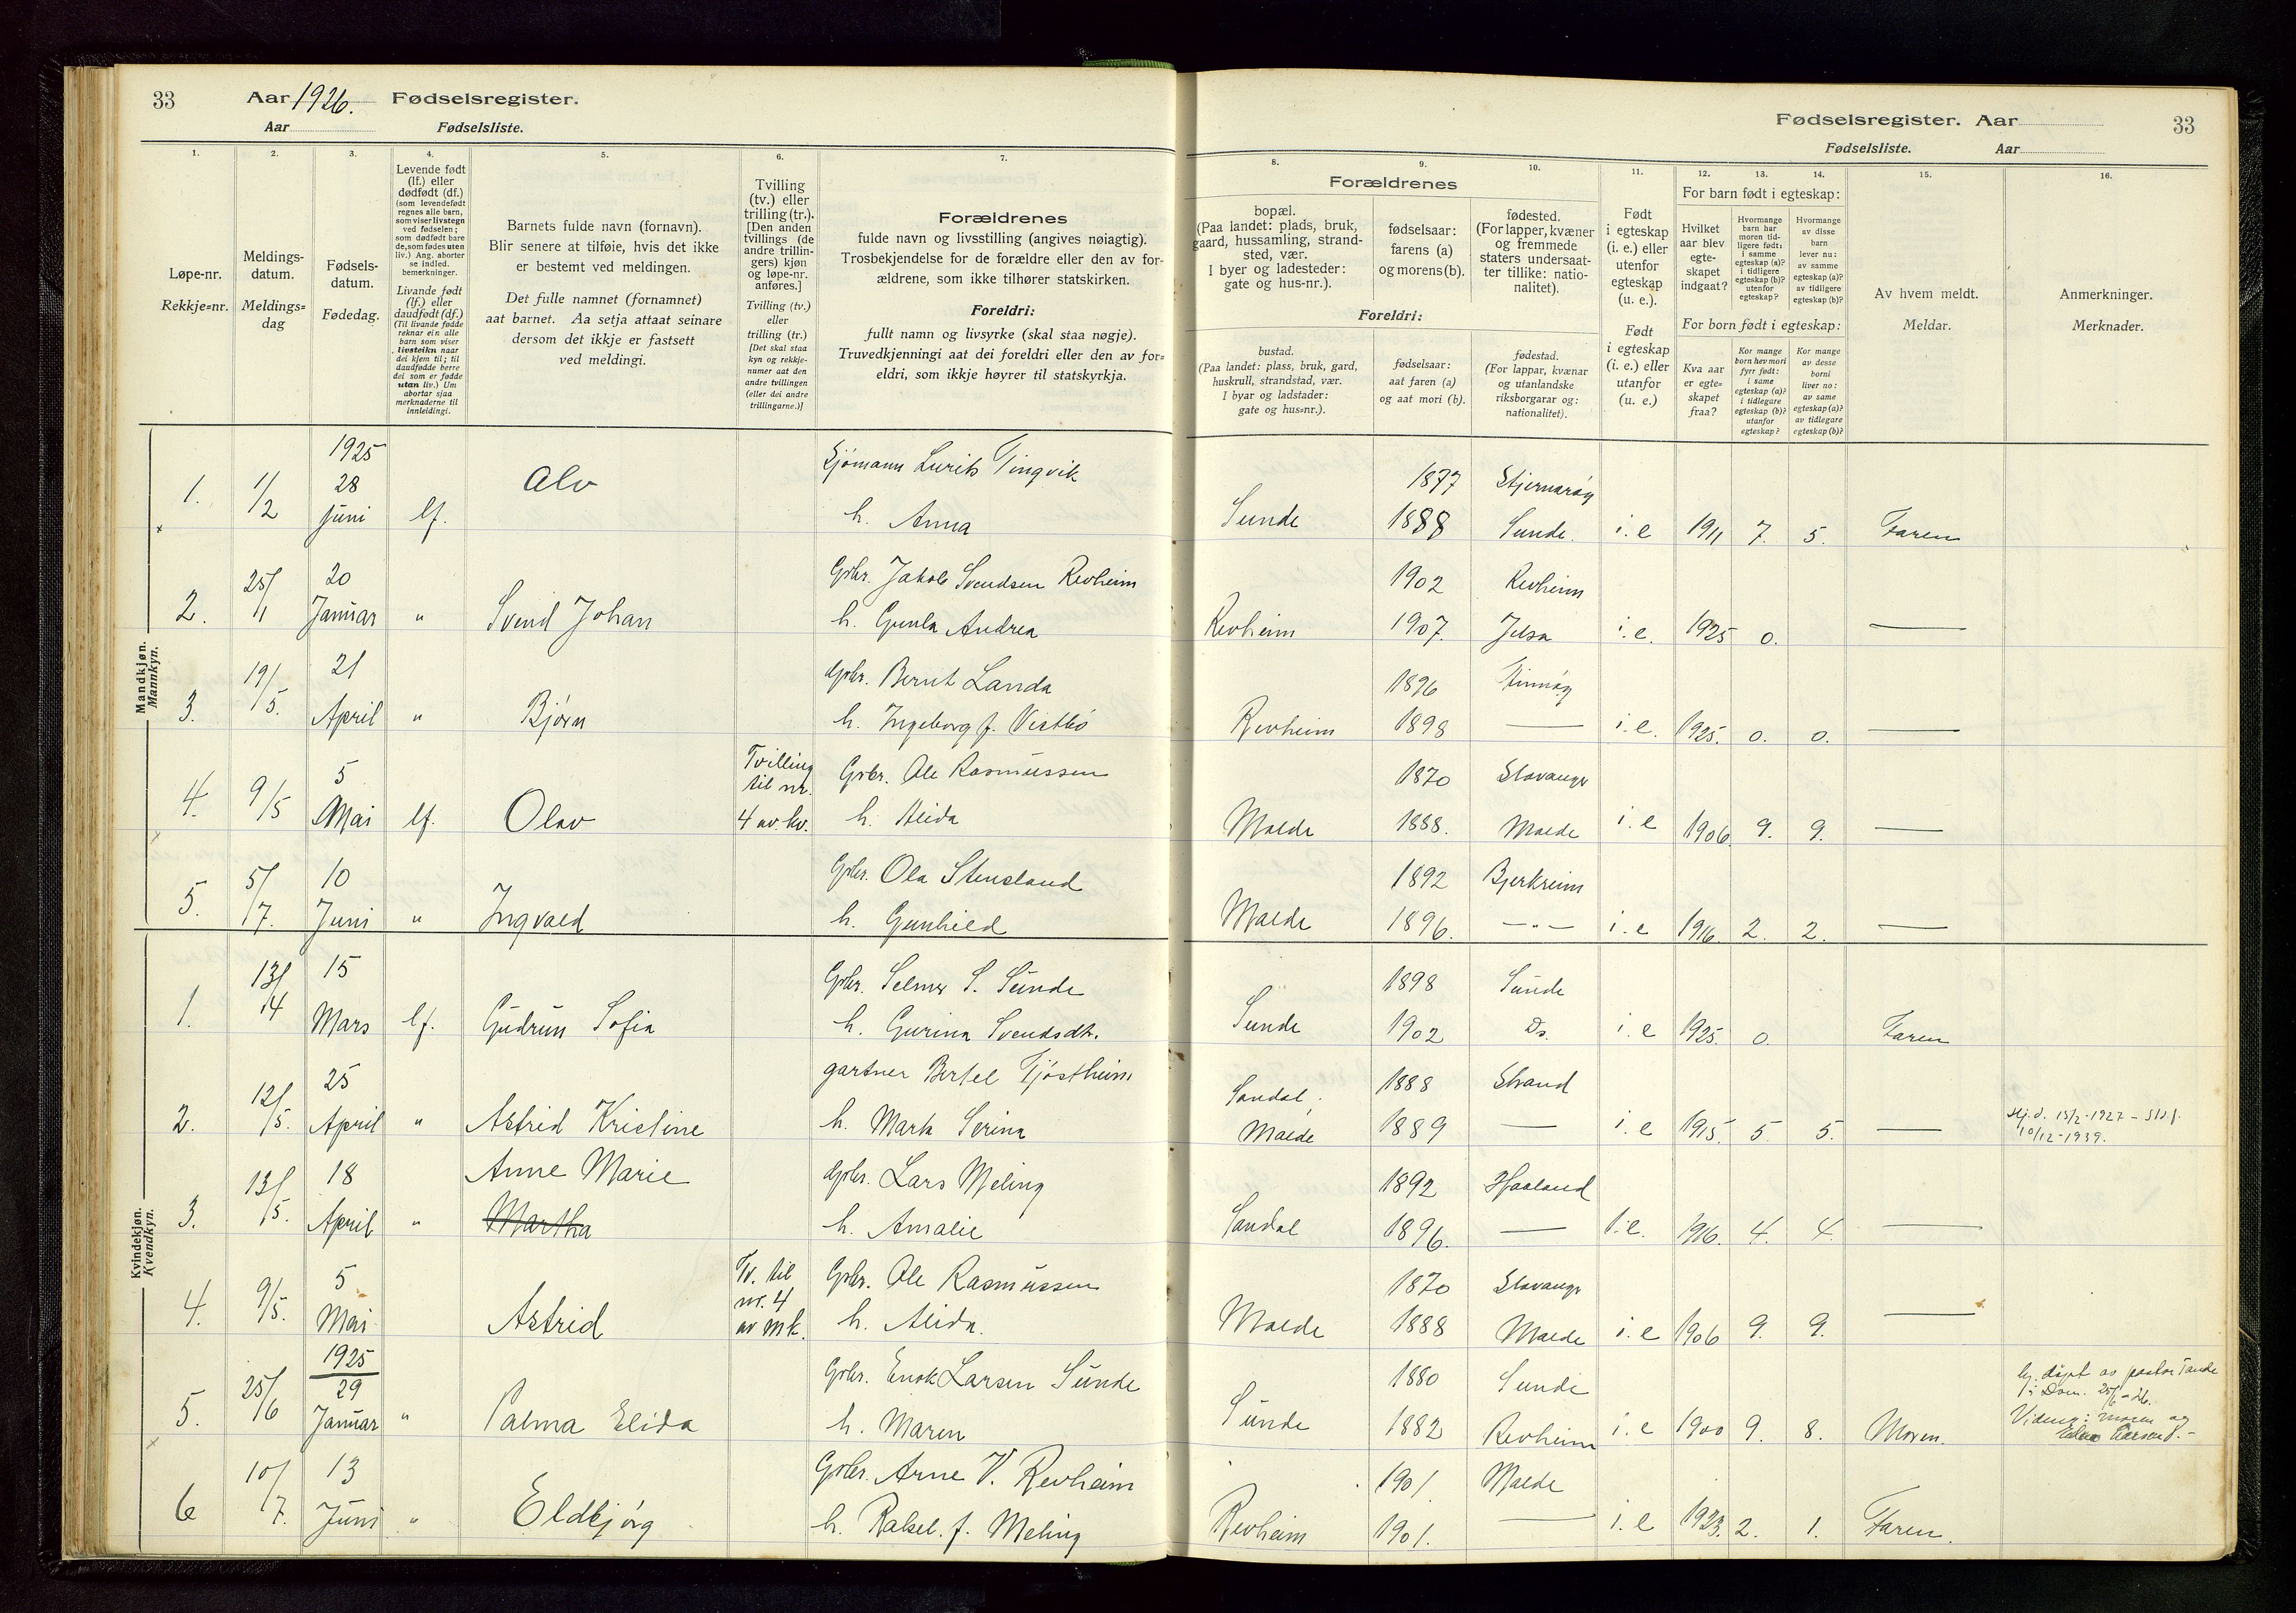 33 Aar 1926. Fødselsregister.
Aar Fødselsliste.
Fødselsregister. Aar 33
Fødselsliste. Aar
1. 2. 3. 4. 5. 6. 7.
Løpe-nr.
Rekkje=nr.
Meldings-
datum.
Meldings=
dag
Fødsels-
datum.
Fødedag.
Levende født
(lf.) eller
dødfødt (df.)
(som levendefødt
regnes alle barn,
som viser livstegn
ved fødselen;
som dødfødt bare
de, som fødes uten
liv.) Ang. aborter
se indled.
bemerkninger.
Livande født
(lf.) eller
daudfødt (df.)
(Til livande fødde
reknar ein alle
barn som viser
livsteikn naar
dei kjem til; til
daudfødde berre
dei som er fødde
utan liv.) Um
abortar sjaa
merknaderne til
innleidingi.
Barnets fulde navn (fornavn).
Blir senere at tilføie, hvis det ikke
er bestemt ved meldingen.
Det fulle namnet (fornamnet)
aat barnet. Aa setja attaat seinare
dersom det ikkje er fastsett
ved meldingi.
Tvilling
(tv.) eller
trilling (tr.).
[Den anden
tvillings (de
andre trillin-
gers) kjøn
og løpe-nr.
anføres.]
Tvilling (tv.)
eller
trilling (tr.)
[Det skal staa
kyn og rekkje-
numer aat den
andre tvillingen
(eller dei andre
trillingarne.)]
Forældrenes
fulde navn og livsstilling (angives nøiagtig).
Trosbekjendelse for de forældre eller den av for-
ældrene, som ikke tilhører statskirken.
Foreldri:
fullt namn og livsyrke (skal staa nøgje).
Truvedkjenningi aat dei foreldri eller den av for=
eldri, som ikkje høyrer til statskyrkja.
8. 9. 10. 11. 12. 13. 14. 15. 16.
Forældrenes
bopæl.
(Paa landet: plads, bruk,
gaard, hussamling, strand-
sted, vær.
I byer og ladesteder:
gate og hus-nr.).
fødselsaar:
farens (a)
og morens (b).
fødested.
(For lapper, kvæner
og fremmede
staters undersaat-
ter tillike: natio-
nalitet).
Foreldri:
bustad.
(Paa landet: plass, bruk, gard,
huskrull, strandstad, vær.
I byar og ladstader:
gate og hus=nr.).
fødselsaar:
aat faren (a)
og aat mori (b).
fødestad.
(For lappar, kvænar
og utanlandske
riksborgarar og:
nationalitet).
Født
i egteskap
(i. e.) eller
utenfor
egteskap
(u. e.).
Født
i egteskap
(i. e.) eller
utanfor
(u. e.)
For barn født i egteskap:
Hvilket
aar blev
egte-
skapet
indgaat?
Hvormange
barn har
moren tid-
ligere født:
i samme
egteskap (a)?
i tidligere
egteskap (b)?
utenfor
egteskap?
Hvormange
av disse
barn
lever nu:
av samme
egteskap (a)?
av tidligere
egteskap (b)?
For born født i egteskap:
Kva aar
er egte=
skapet
fraa?
Kor mange
born hev mori
fyrr født:
i same
egteskap (a)?
i tidlegare
egteskap (b)?
utanfor
egteskap?
Kor mange
av desse
borni
liver no:
av same
egteskap (a)?
av tidlegare
egteskap (b)?
Av hvem meldt.
Meldar.
Anmerkninger.
Merknader.
Mandkjøn.
Mannkyn.
1925
1. 1/2 28 juni lf. Alv Sjømann Lurits Tingvik
h. Anna
1877 Stjernarøy
Sunde 1888 Sunde. i. e 1911 7. 5. Faren
2. 25/1 20 Januar " Svend Johan Gbr. Jakob Svendsen Revheim
h. Gunla Andrea
1902 Revheim
Revheim 1907. Jelsa i. e. 1925 0. —
3. 19/5. 21 April " Bjørn Gbr. Bernt Landa
h. Ingeborg f. Vistbø
1896 Finnøy
Revheim 1898 — i. e. 1925. 0. 0. —
4. 9/5 5 Mai lf. Olav Tvilling
til nr.
4 av. kv.
Gbr. Ole Rasmussen
h. Alida
1870 Stavanger
Maede 1888. Maede i. e 1906. 9. 9. —
5. 5/7. 10 Juni " Ingvald Gbr. Ola Stensland
h. Gunhild
1892 Bjerkreim
Maede 1896. — " — i. e 1916. 2. 2. —
Kvindekjøn.
Kvendkyn.
1. 13/4 15 Mars lf. Gudrun Sofia Gbr. Selmer S. Sunde
h. Gurina Svendsdtr.
1898 Sunde
Sunde 1902 Do. i. e 1925. 0. Faren
2. 12/5. 25 April " Astrid Kristine gartner Bertel Tjøstheim
h. Marta Serina
Sandal, 1888 Strand
Maede 1889 — i. e 1915. 5. 5. —
15/2-1927 –
10/12-1939.
3. 13/5. 18 April " Anne Marie
Martha
Gbr. Lars Meling
h. Amalie
1892 Haaland
Sandal 1896. — i. e. 1916. 4. 4. —
4. 9/5. 5 Mai Astrid Tv. til
nr. 4
av mk.
Gbr. Ole Rasmussen
h. Alida.
1870 Stavanger
Maede 1888 Maede i. e 1906 9. 9. —
1925
5. 25/6 29 Januar " Palma Elida Gbr. Enok Larsen Sunde
h. Maren
1880 Sunde
Sunde 1882 Revheim i. e 1900 9. 8. Moren.
døpt av pastor Tande
i Dom. 25/6-26.
Vidner: moren og
6 10/7. 13 Juni " Eldbjørg Gbr. Arne V. Revheim
h. Rakel. f. Meling
1901. Maede
Revheim 1901. — i. e 1923. 2. 1. Faren.